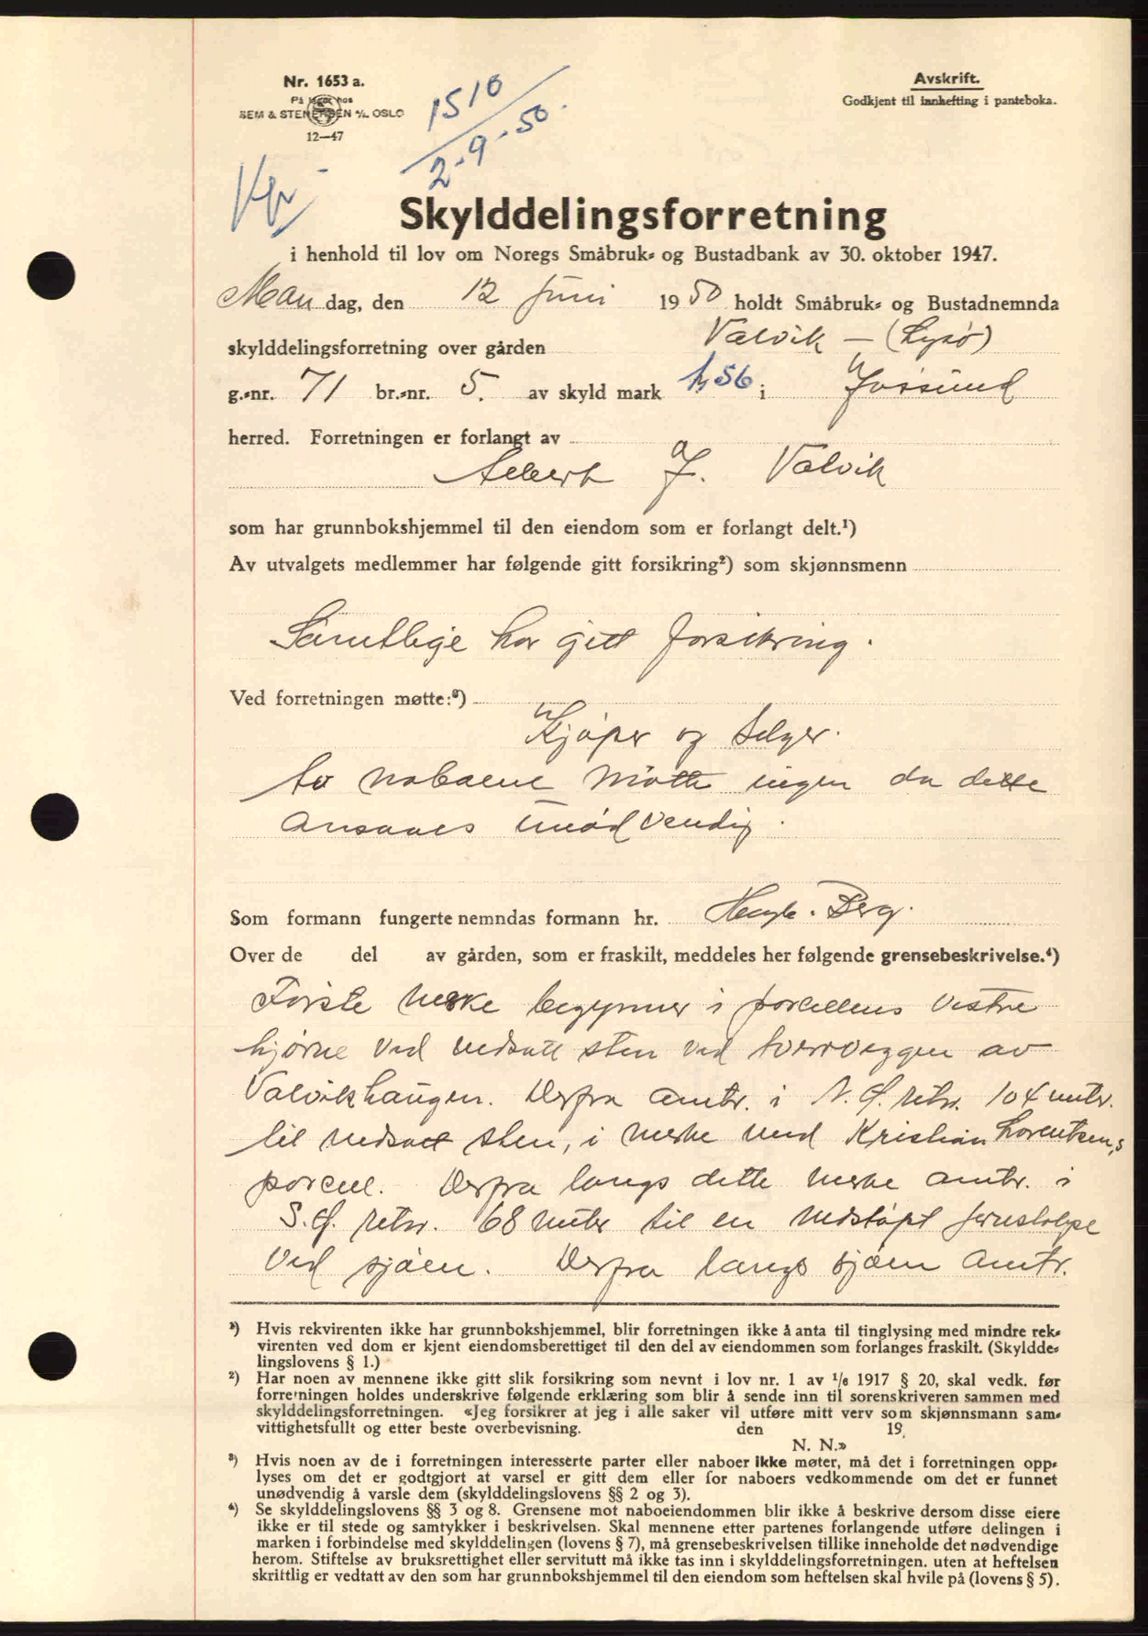 Nr. 1653 a.
På lager hos
SEM & STENERSEN A/S OSLO
12—47
1510
2-9-50.
Avskrift.
Godkjent til innhefting i panteboka.
Skylddelingsforretning
i henhold til lov om Noregs Småbruk- og Bustadbank av 30. oktober 1947.
Man dag, den 12 Juni 1950 holdt Småbruk- og Bustadnemnda
skylddelingsforretning over gården Valvik — (Lysø)
g.-nr. 71 br.-nr. 5. av skyld mark 1,56 i Jøssund
herred. Forretningen er forlangt av
Albert J. Valvik
som har grunnbokshjemmel til den eiendom som er forlangt delt.¹)
Av utvalgets medlemmer har følgende gitt forsikring²) som skjønnsmenn
Samtlige har gitt forsikring.
Ved forretningen møtte:³)
Kjøper og Selger.
Av naboene møtte ingen da dette
ansaaes unødvendig.
Som formann fungerte nemndas formann hr. Berg.
Over de del av gården, som er fraskilt, meddeles her følgende grensebeskrivelse.⁴)
Første merke begynner i parcellens vestre
hjørne ved nedsatt sten ved tverrveggen av
Valvikhaugen. Derfra amtr. i N.Ø. retn. 104 mtr.
til nedsatt sten, i merke med Kristian Lorentsen,s
parcell. Derfra langs dette merke amtr. i
S.Ø. retn. 68 meter til en nedstøpt jernstolpe
ved sjøen. Derfra langs sjøen amtr.
¹) Hvis rekvirenten ikke har grunnbokshjemmel, blir forretningen ikke å anta til tinglysing med mindre rek-
virenten ved dom er kjent eiendomsberettiget til den del av eiendommen som forlanges fraskilt. (Skyldde-
lingslovens § 1.)
²) Har noen av mennene ikke gitt slik forsikring som nevnt i lov nr. 1 av 1/6 1917 § 20, skal vedk. før
forretningen holdes underskrive følgende erklæring som blir å sende inn til sorenskriveren sammen med
skylddelingsforretningen. «Jeg forsikrer at jeg i alle saker vil utføre mitt verv som skjønnsmann sam-
vittighetsfullt og etter beste overbevisning. den 19
N. N.»
³) Hvis noen av de i forretningen interesserte parter eller naboer ikke møter, må det i forretningen opp-
lyses om det er godtgjort at varsel er gitt dem eller for naboers vedkommende om det er funnet
unødvendig å varsle dem (skylddelingslovens §§ 2 og 3).
⁴) Se skylddelingslovens §§ 3 og 8. Grensene mot naboeiendommen blir ikke å beskrive dersom disse eiere
ikke er til stede og samtykker i beskrivelsen. Skal mennene etter partenes forlangende utføre delingen i
marken i forbindelse med skylddelingen (lovens § 7), må grensebeskrivelsen tillike inneholde det nødvendige
herom. Stiftelse av bruksrettighet eller servitutt må ikke tas inn i skylddelingsforretningen. uten at heftelsen
skriftlig er vedtatt av den som har grunnbokshjemmel til den eiendom som heftelsen skal hvile på (lovens § 5).